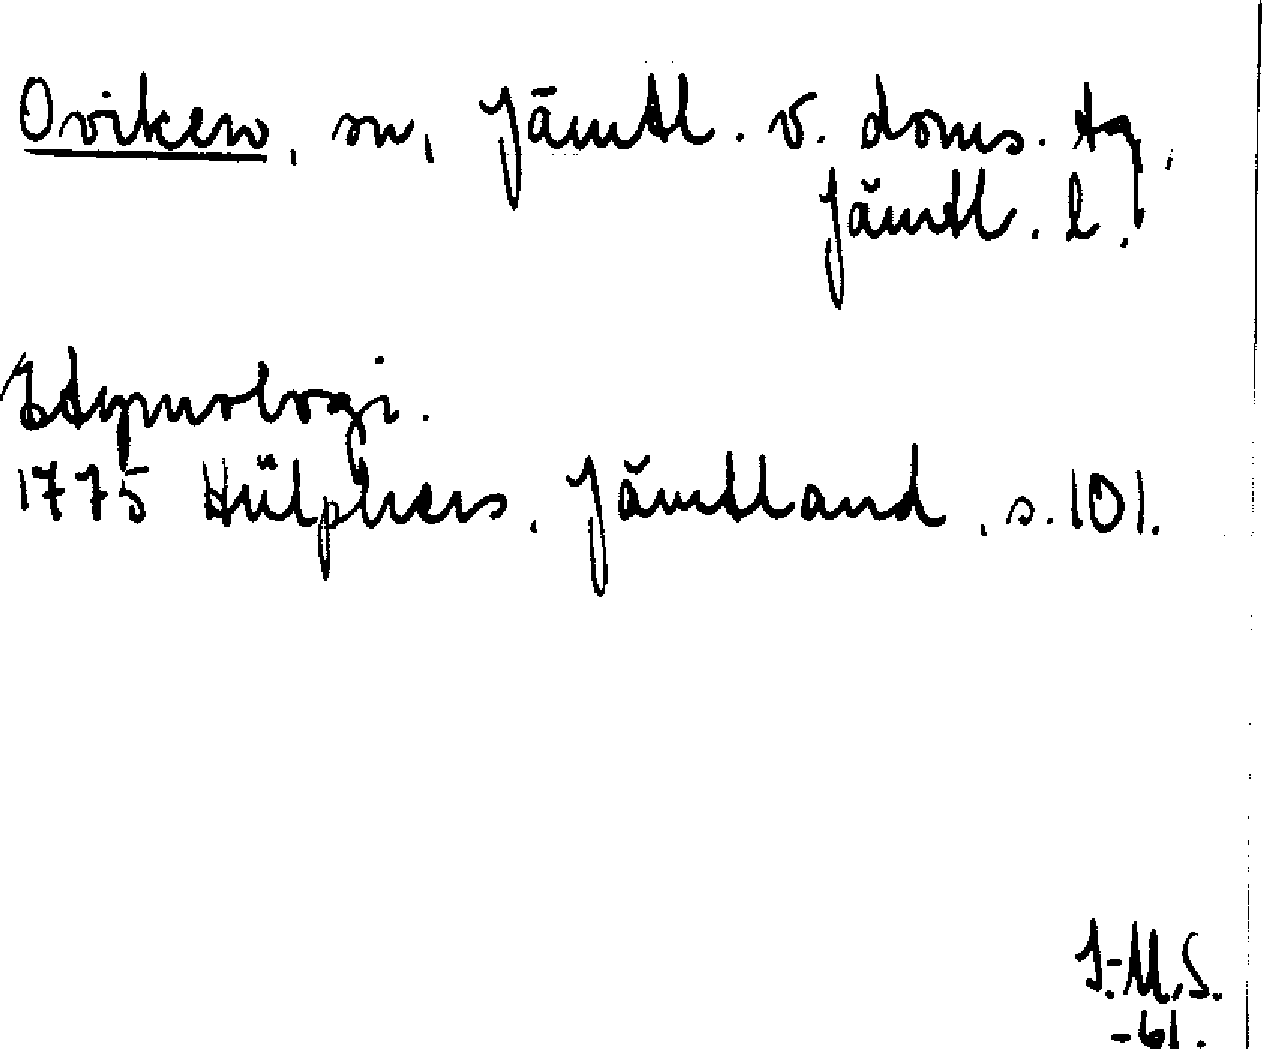 Oviken, sn, Jämtl. v. doms. tg,
Jämtl. l.
Etymologi.
1775 Hülphers. Jämtland, s. 101.
I.-M.S.
-61.